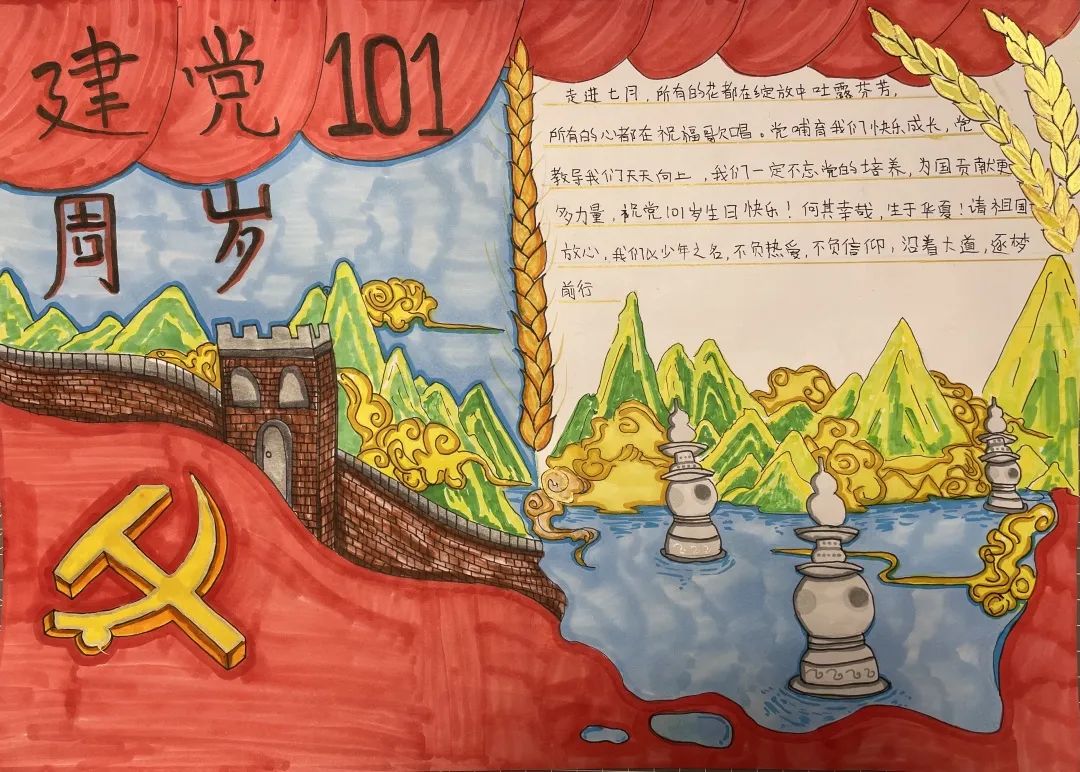 建党101
周岁
走进七月，所有的花都在绽放中吐露芬芳，
所有的心都在祝福歌唱。党哺育我们快乐成长，党
教导我们天天向上，我们一定不忘党的培养，为国贡献更
多力量，祝党101岁生日快乐！何其幸哉，生于华夏！请祖国
放心，我们以少年之名，不负热爱，不负信仰，沿着大道，逐梦
前行